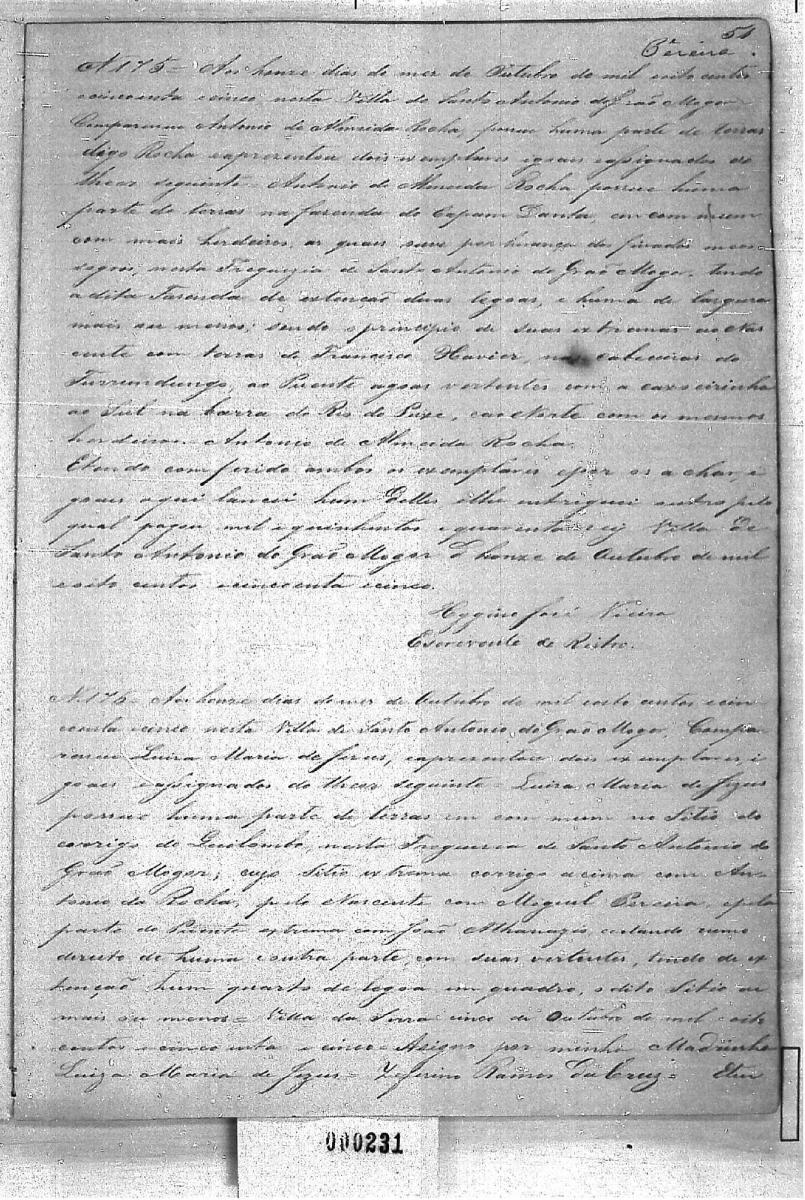 51
Pereira.
N 175 = Aos honze dias do mez de Outubro de mil oito centos
e cincoenta e cinco, nesta Villa de Santo Antonio do Graõ Mogor
Compareceu Antonio de Almeida Rocha, possue huma parte de terras
digo Rocha e aprezentou dois exemplares igoaes e assignados do
theor seguinte = Antonio de Almeida Rocha possue huma
parte de terras na fazenda do Capam Danta, em com mum
com mais herdeiros, as quais ouve por herança dos finados meos
sogros, nesta Freguezia de Santo Antonio do Graõ Mogor, tendo
a dita Fazenda de extenção duas legoas, e huma de largura
mais ou menos; sendo o principio de suas extremas ao Nas
cente com terras de Francisco Xavier, nas cabeceiras do
Turrundungo, ao Puente agoas vertentes com a caxoeirinha
ao Sul na barra do Rio do Peixe, e ao Norte com os mesmos
herdeiros = Antonio de Almeida Rocha.
E tendo comferido ambos os exemplares e por os achar, i
goaes aqui lancei hum delles e lhe entreguei outro pelo
qual pagou mil e quinhentos e quarenta reis Villa de
Santo Antonio do Graõ Mogor honze de Outubro de mil
e oito centos e cincoenta e cinco.
Hygino José Vieira
Escrevente de Ristro.
N. 176 = Aos honze dias do mez de Outubro de mil oito centos e cin
coenta e cinco nesta Villa de Santo Antonio do Graõ Mogor, Compa
receu Luiza Maria de Jezus, e aprezentou dois exemplares, i
goaes e assignados do theor seguinte = Luiza Maria de Jezus
possue huma parte de terras em com mum no Sitio do
corrigo do Quilombo, nesta Freguezia de Santo Antonio do
Graõ Mogor; cujo Sitio extrema corrigo acima com An
tonio da Rocha, pelo Nascente com Miguel Pereira, e pela
parte do Puente extrema com João Athanazio, cortando rumo
direito de huma e outra parte, com suas vertentes, tendo de ex
tenção hum quarto de legoa em quadro, o dito Sitio ou
mais ou menos = Villa da Serra cinco de Outubro de mil oito
centos e cincoenta e cinco = Asigno por minha Madrinha
Luiza Maria de Jezus = Zeferino Ramos da Cruz = E ten
000231